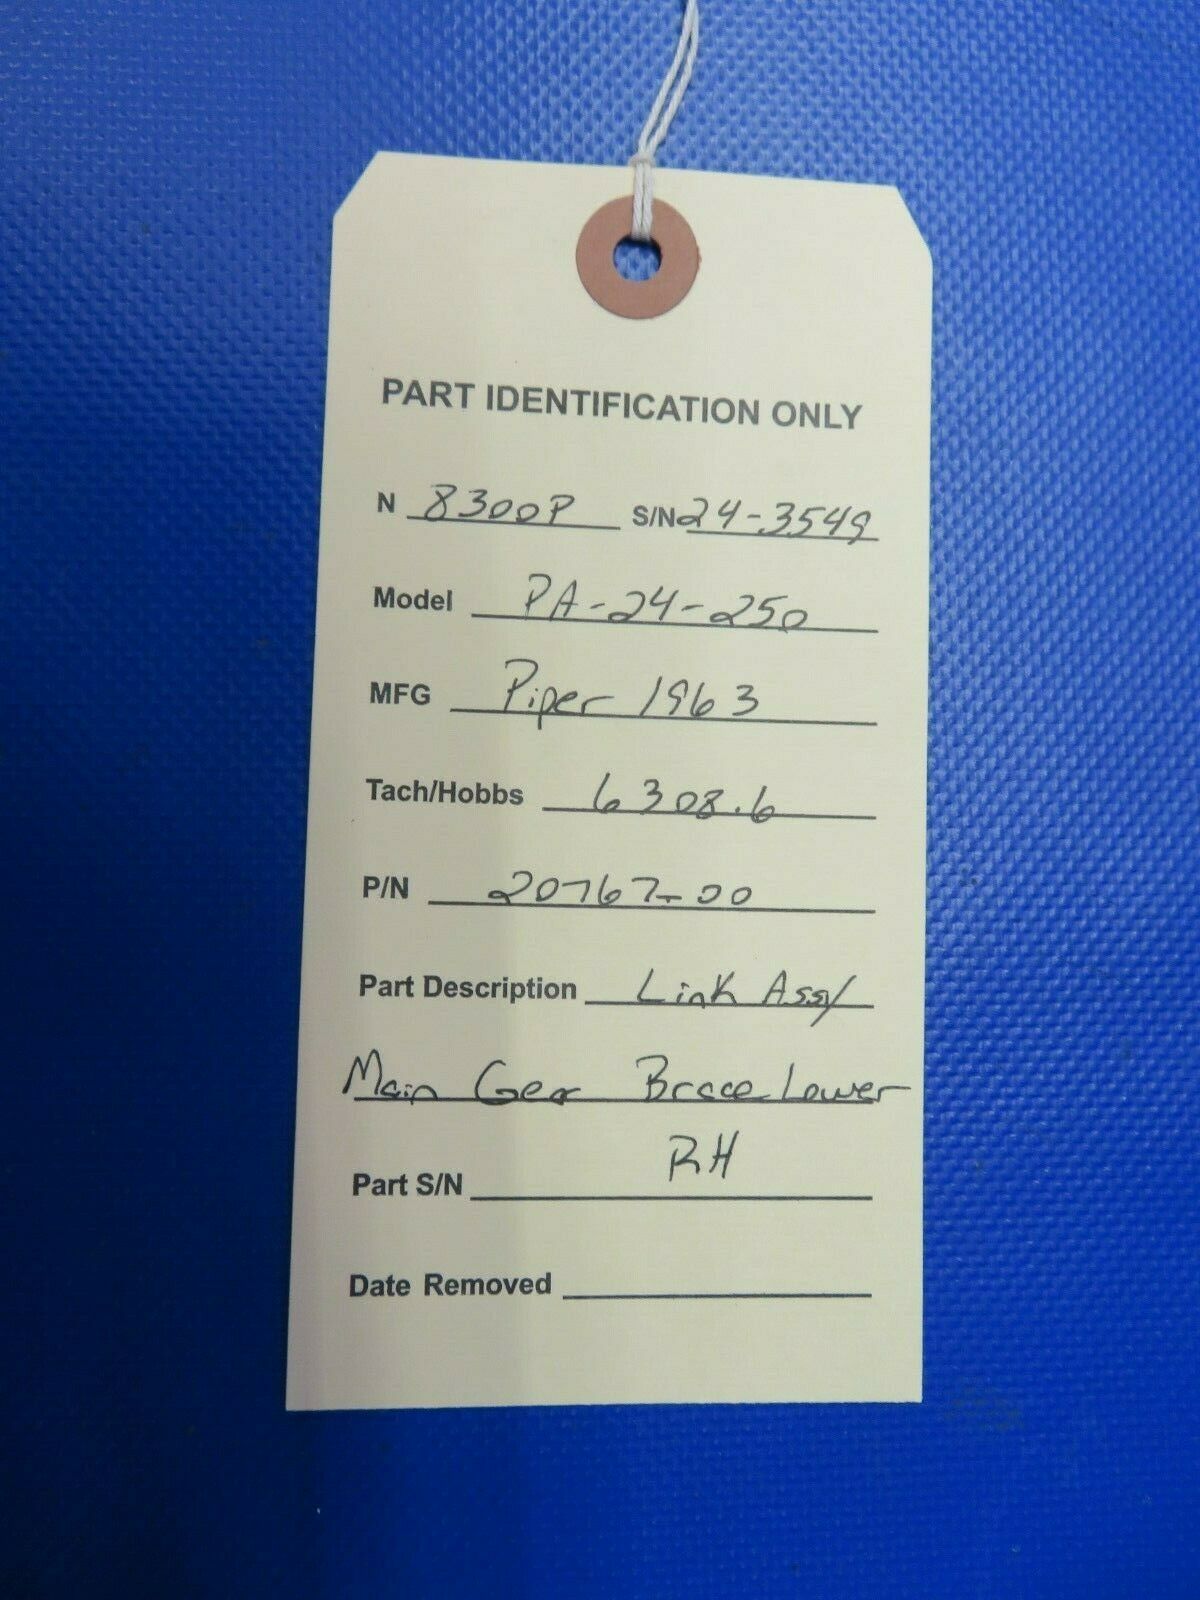 PART IDENTIFICATION ONLY
N 8300P S/N 24-3549
Model PA-24-250
MFG Piper 1963
Tach/Hobbs 6308.6
P/N 20767-00
Part Description Link Assy
Main Gear Brace Lower
RH
Part S/N
Date Removed